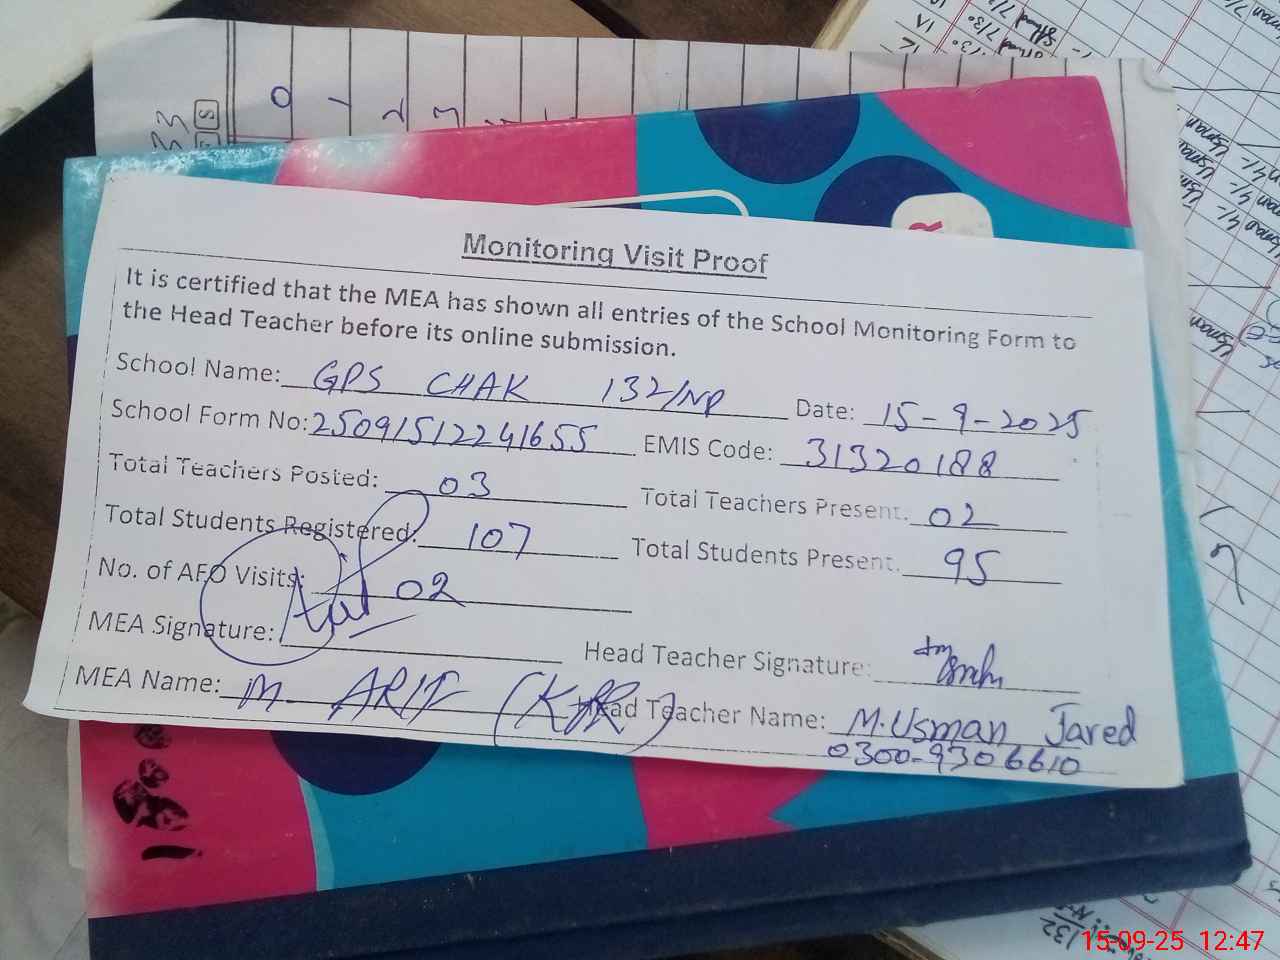 Monitoring Visit Proof
It is certified that the MEA has shown all entries of the School Monitoring Form to
the Head Teacher before its online submission.
School Name: GPS CHAK 132/NP Date: 15-9-2025
School Form No: 25091512241655 EMIS Code: 31320188
Total Teachers Posted: 03 Total Teachers Present. 02
Total Students Registered. 107 Total Students Present. 95
No. of AFO Visits: 02
MEA Signature: Head Teacher Signature:
MEA Name: M. ARIF Head Teacher Name: M. Usman Javed
0300-9306610
15-09-25 12:47